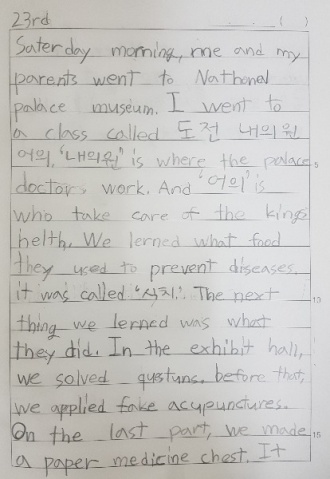 23rd ( )
Saterday morning, me and my
parents went to Nathonal
palace museum. I went to
a class called 도전 내의원
어의. "내의원" is where the palace 5
doctors work. And "어의" is
who take care of the kings
helth. We lerned what food
they used to prevent diseases.
it was called "식치". The next 10
thing we lerned was what
they did. In the exhibit hall,
we solved qustuns. before that,
we applied fake acupunctures.
On the last part, we made 15
a paper medicine chest. It